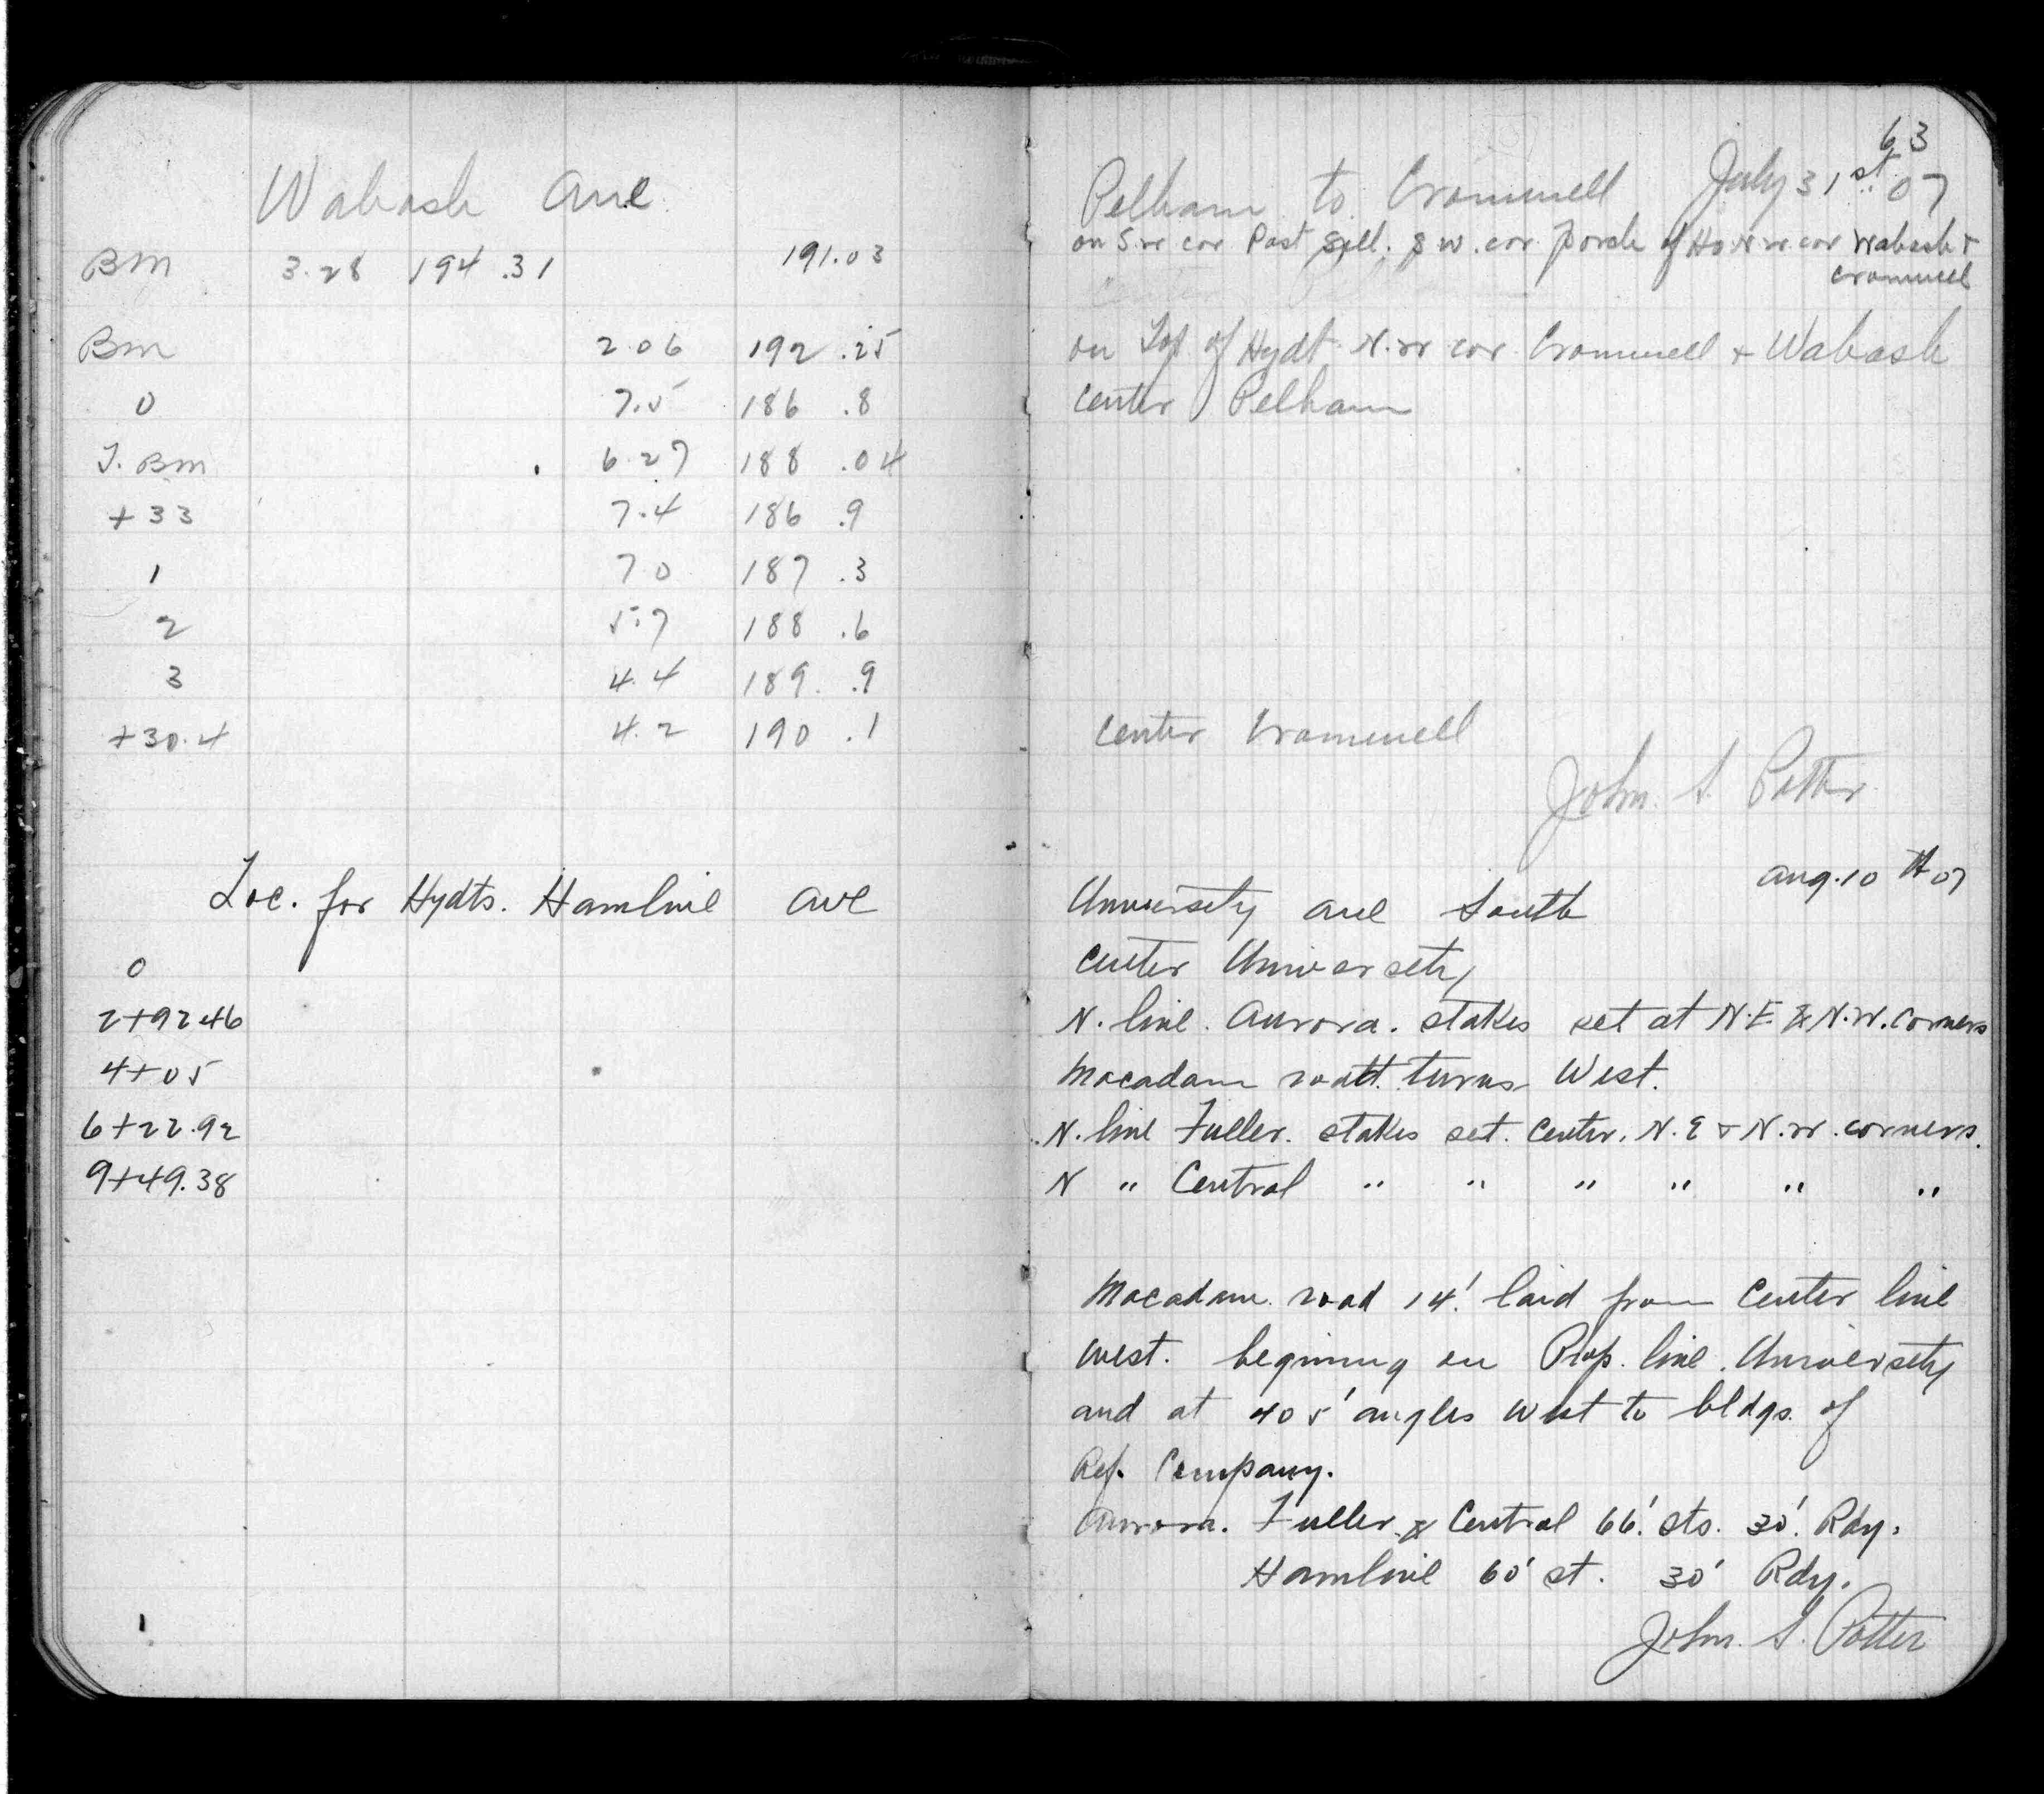 63
Wabash Ave
Pelham to Cromwell July 31st 07
BM 3.28 194.31 191.03
on S.W cor Post Sill. S W. cor. porch of Ho N W cor Wabash +
Cromwell
BM 2.06 192.25
on Top of Hydt. N.W cor. Cromwell + Wabash
0 7.5 186.8
Center Pelham
T. BM 6.27 188.04
+33 7.4 186.9
1 7.0 187.3
2 5.7 188.6
3 4.4 189.9
+30.4 4.2 190.1
Center Cromwell
John. S. Potter
Aug. 10th 07
Loc. for Hydts. Hamline Ave
University Ave South
0
Center University
2+92.46
N. line. Aurora. stakes set at N.E. & N.W. corners
4+05
Macadam road turns West.
6+22.92
N. line Fuller. stakes set. Center. N.E + N.W. corners.
9+49.38
N " Central " " " " " "
Macadam road 14'. laid from Center line
west. begining on Prop. line. University
and at 405' angles West to bldgs. of
Ref. Company.
Aurora. Fuller & Central 66'. sts. 30'. Rdy.
Hamline 60' st. 30' Rdy.
John. S. Potter